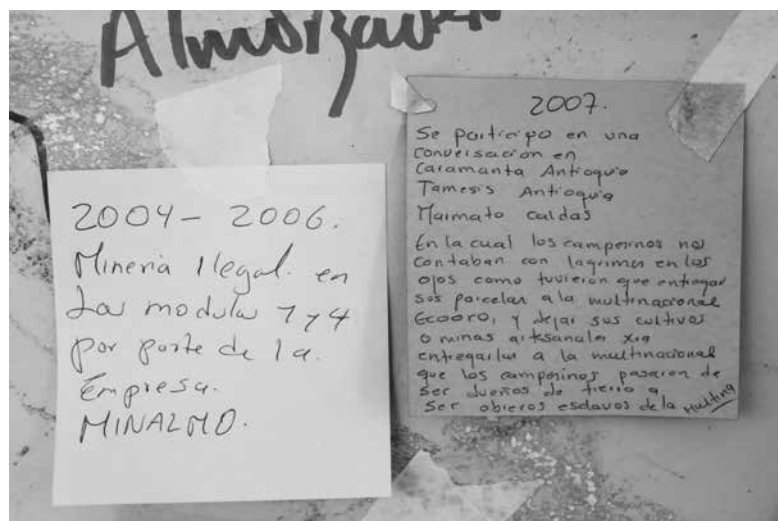 2004 - 2006.
Mineria Ilegal. en
Los modulos 7 y 4
por parte de la.
Empresa.
MINALMO.
2007.
Se participo en una
conversacion en
Caramanta Antioquia
Tamesis Antioquia
Marmato caldas
En la cual los campesinos nos
contaban con lagrimas en los
ojos como tuvieron que entregar
sus parcelas a la multinacional
Ecooro, y dejar sus cultivos
o minas artesanales xra
entregarlas a la multinacional
que los campesinos pasaron de
ser dueños de tierra a
ser obreros esclavos de la Multina